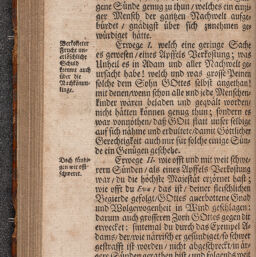 gene Sünde genug zu thun / welches ein einzi-
ger Mensch der gantzen Nachwelt aufge-
bürdet / gnädigst über sich zunehmen ge-
würdiget hätte.
Erwege I. welch eine geringe Sache
es gewesen / eines Apfels Verkostung; was
Unheil es in Adam und aller Nachwelt ge-
ursachet habe! welch und was grosse Peinen
solche dem Sohn GOttes selbst angethan!
mit denen / wenn schon alle und jede Menschen-
kinder wären beladen und gequält worden /
nicht hätten können genug thun; sondern es
war vonnöthen / daß GOtt statt unser selbige
auf sich nähme und erdultete / damit Göttlicher
Gerechtigkeit auch nur für solche einige Sün-
de ein Genügen geschehe.
Doch sündi-
gen wir offt
schwerer.
Erwege II. wie offt und mit weit schwe-
rern Sünden / als eines Apfels Verkostung
war / du die höchste Majestät erzörnet hast;
wie offt du Eva / das ist / deiner fleischlichen
Begierde gefolgt / GOttes angebottene Gnad
und Wolgewogenheit in Wind geschlagen;
darum auch grösseren Zorn GOttes gegen dir
erwecket: sintemal du durch das Exempel A-
dams / der / wie närrischer gesündiget / so schwer
gestrafft ist worden / nicht abgeschreckt / in är-